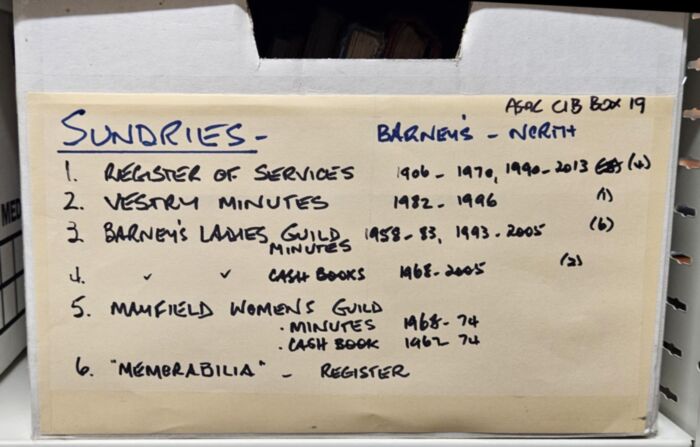 ASAC CIB BOX 19
SUNDRIES - BARNEY'S - NORTH
1. REGISTER OF SERVICES 1906 - 1970, 1990 - 2013 (4)
2. VESTRY MINUTES 1982 - 1996 (1)
3. BARNEY'S LADIES GUILD 1958 - 83, 1993 - 2005 (6)
MINUTES
4. " " CASH BOOKS 1968 - 2005 (2)
5. MAYFIELD WOMEN'S GUILD
· MINUTES 1968 - 74
· CASH BOOK 1962 - 74
6. "MEMORABILIA" - REGISTER
MED